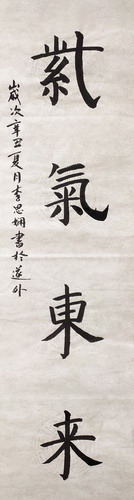 紫氣東来
歲次辛丑夏月李思珊書於遼外